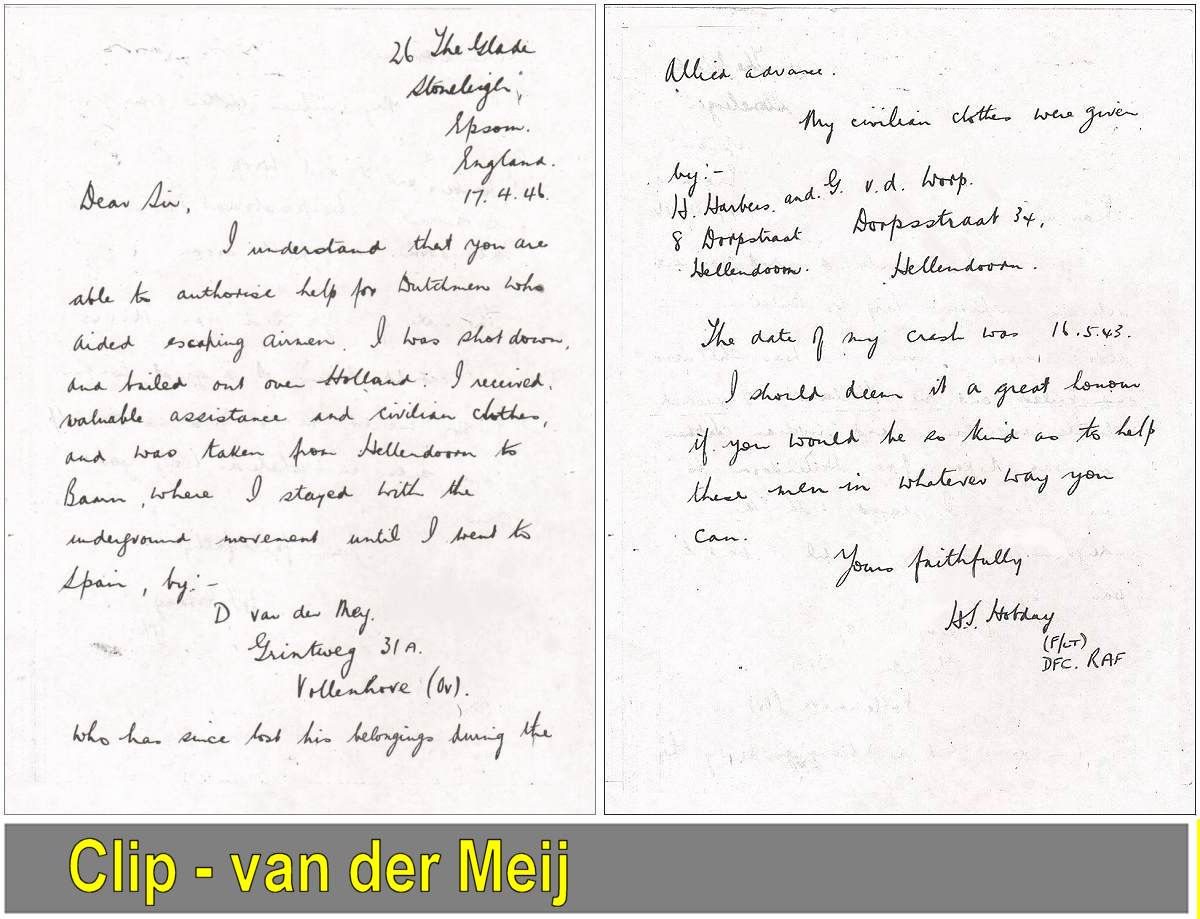 26 The Glade
Stoneleigh,
Epsom.
England.
17.4.46.
Dear Sir,
I understand that you are
able to authorise help for Dutchmen who
aided escaping airmen. I was shot down,
and bailed out over Holland. I received,
valuable assistance and civilian clothes,
and was taken from Hellendoorn to
Baarn, where I stayed with the
underground movement until I went to
Spain, by:-
D van der Mey.
Grintweg 31A.
Vollenhove (Ov).
who has since lost his belongings during the
Allied advance.
My civilian clothes were given
by:-
H. Harbers. and. G. v.d. Worp.
8 Dorpstraat Dorpsstraat 34,
Hellendoorn. Hellendoorn.
The date of my crash was 16.5.43.
I should deem it a great honour
if you would be so kind as to help
these men in whatever way you
can.
Yours faithfully
H.S. Hobday
(F/LT)
DFC. RAF
Clip - van der Meij